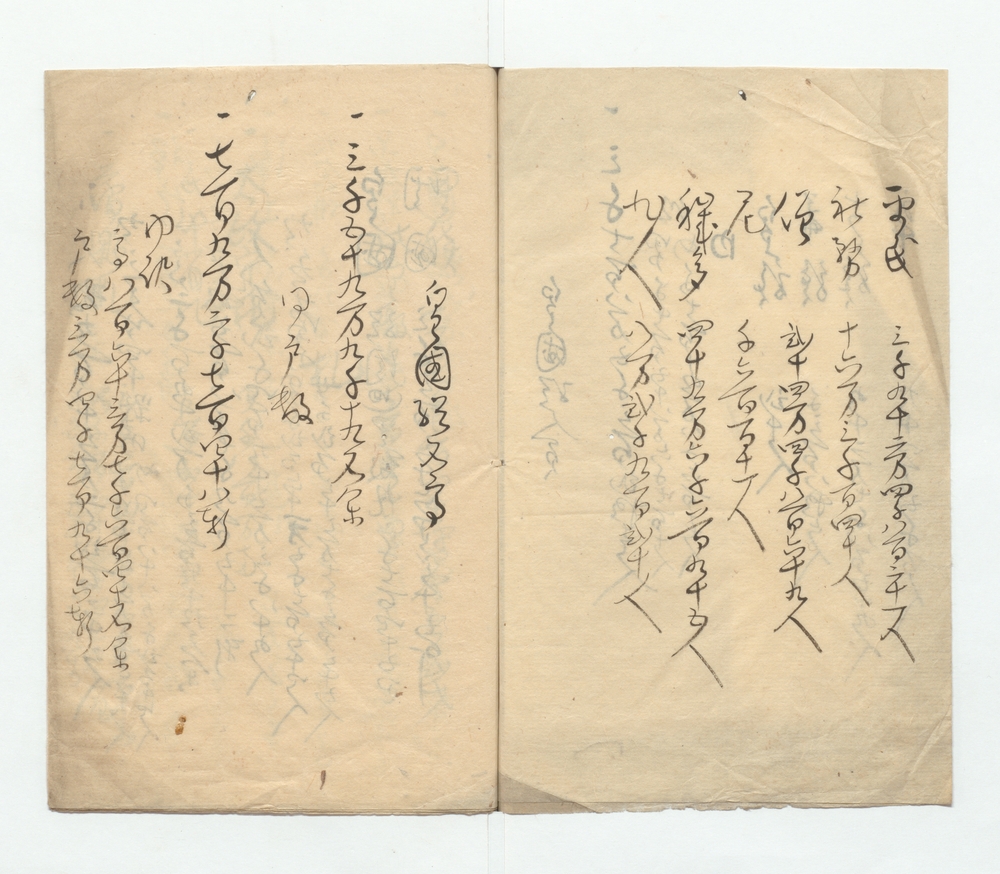 平民 三千九十二万四千八百二十一人
社務 十六万三千百四十人
僧 弐十四万四千八百六十九人
尼 千六百百十一人
穢多 四十五万六千六百九十五人
九人 八万弐千九百弐十人
皇国総高
一 三千五十九万九千十九石余
同戸数
一 七百九万二千七百四十八軒
内訳
高八百六十三万七千六百四十石余
戸数三万四千七百九十六軒